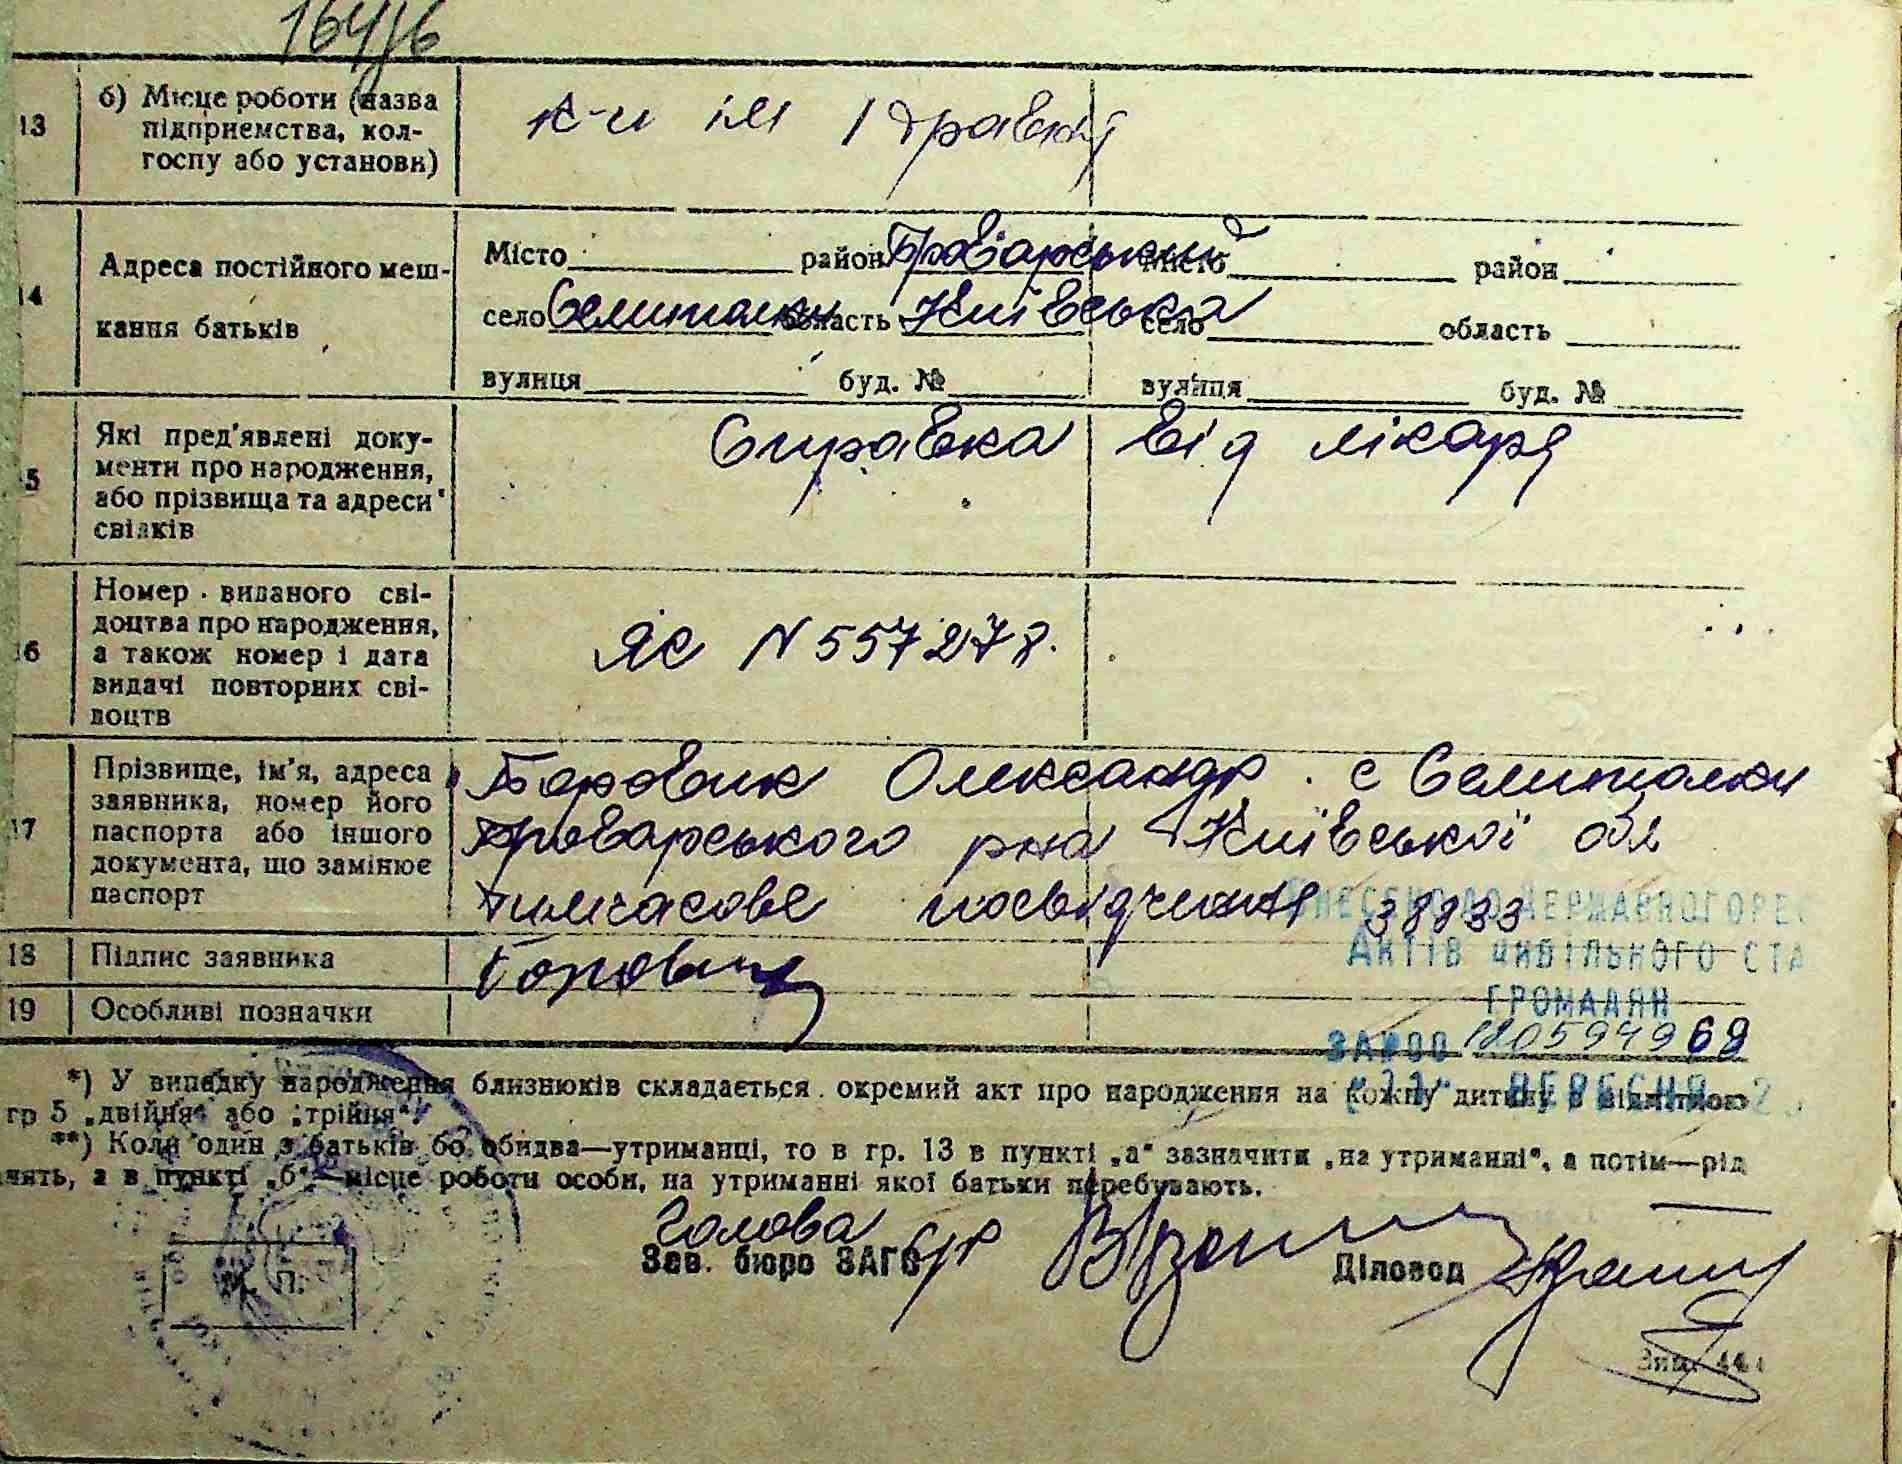 164/6
13 б) Місце роботи (назва підприємства, колгоспу або установи)
к-п ім 1 травня
14 Адреса постійного мешкання батьків
Місто район Броварський Місто район
село Селиталки область Київська село область
вулиця буд. № вулиця буд. №
5 Які пред'явлені документи про народження, або прізвища та адреси свідків
Справка від лікаря
16 Номер виданого свідоцтва про народження, а також номер і дата видачі повторних свідоцтв
ЯС N 557278.
17 Прізвище, ім'я, адреса заявника, номер його паспорта або іншого документа, що замінює паспорт
Боровик Олександр. с Селиталки
Броварського р-на Київської обл
тимчасове посвідчення 38833
ВНЕСЕНО ДО ДЕРЖАВНОГО РЕЄ
АКТІВ ЦИВІЛЬНОГО СТА
18 Підпис заявника Боровик
ГРОМАДЯН
19 Особливі позначки
ЗА №00
ВЕРЕСНЯ 2
*) У випадку народження близнюків складається окремий акт про народження на кожну дитину з відміткою
гр 5 „двійня“ або „трійня“.
**) Коли один з батьків бо обидва—утриманці, то в гр. 13 в пункті „а“ зазначити „на утриманні“, а потім—рід
нять, а в пункті „б“—місце роботи особи, на утриманні якої батьки перебувають.
Голова с/р
Зав. бюро ЗАГС Діловод
М. П.